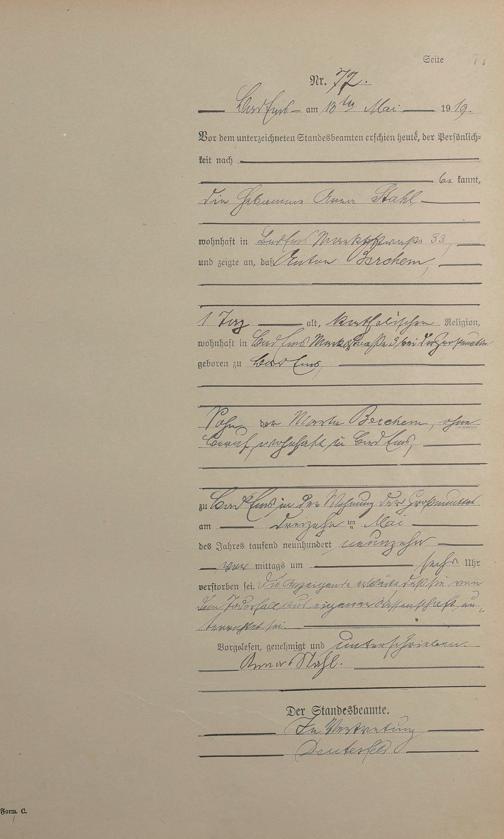 Seite 7
Nr. 72.
Bad Ems am 13ten Mai 1919.
Vor dem unterzeichneten Standesbeamten erschien heute, der Persönlich-
keit nach
be kannt,
die Hebamme Anna Stahl
wohnhaft in Bad Ems Marktstraße 33,
und zeigte an, daß Anton Berchem,
1 Tag alt, katholischen Religion,
wohnhaft in Bad Ems Marktstraße bei der Großmutter
geboren zu Bad Ems,
Sohn der Maria Berchem, ohne
Beruf, wohnhaft in Bad Ems,
zu Bad Ems in der Wohnung der Großmutter
am dreizehnten Mai
des Jahres tausend neunhundert neunzehn
vor mittags um sechs Uhr
verstorben sei. Die Anzeigende erklärte daß sie von
dem Todesfall aus eigener Wissenschaft un-
terrichtet sei.
Vorgelesen, genehmigt und unterschrieben
Anna Stahl.
Der Standesbeamte.
In Vertretung
Form. C.